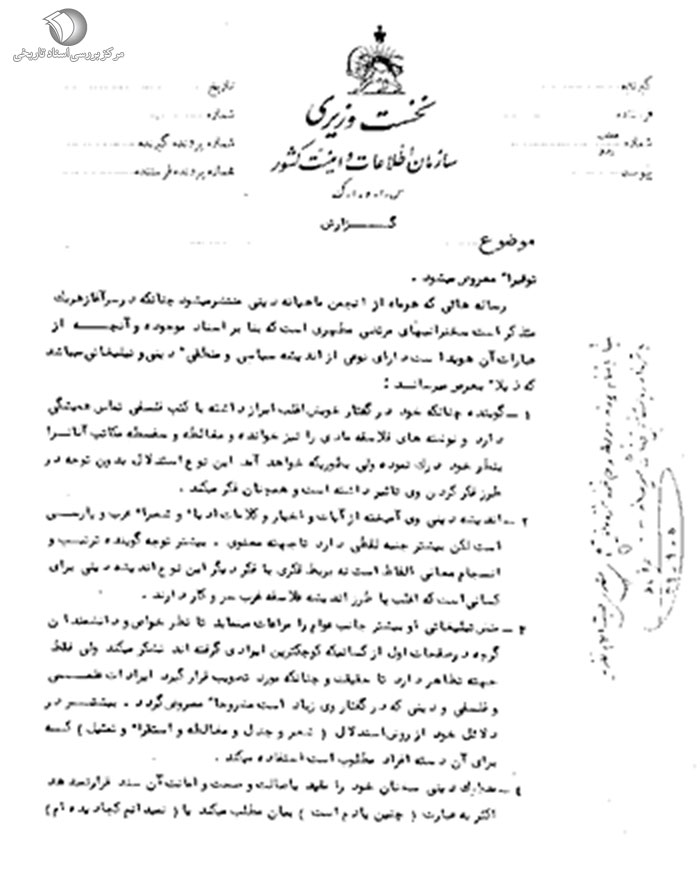 مرکز بررسی اسناد تاریخی
نخست وزیری
سازمان اطلاعات و امنیت کشور
گیرنده
شماره
پیوست
تاریخ
شماره
شماره پرونده گیرنده
شماره پرونده فرستنده
گــزارش
موضوع
توقیرا" معروض میشود .
رساله هائی که هرماه از انجمن ماهیانه دینی منتشرمیشود چنانکه درسرآغازهریک
متذکر است سخنرانیهای مرتضی مطهری است که بنا بر اسناد موجوده و آنچــه از
عبارات آن هویدا است دارای نوعی از اندیشه سیاسی و منطقی" دینی و تبلیغاتی میباشد
که ذیلا" بعرض میرسانــد :
۱ – گوینده چنانکه خود در گفتار خویش اغلب ابراز داشته با کتب فلسفی تماس همیشگی
دارد و نوشته های فلاسفه مادی را نیز خوانده و مغالطه و سفسطه مکاتب آنانرا
بنظر خود درک نموده ولی بطوریکه خواهد آمد این نوع استدلال بدون توجه در
طرز فکر کردن وی تاثیر داشته است و همچنان فکر میکند .
۲ – اندیشه دینی وی آمیخته از آیات و اخبار و کلمات ادبا" و شعرا" عرب و پارسی
است لکن بیشتر جنبه لفظی دارد تا جنبه معنوی . بیشتر توجه گوینده ترتیب و
انسجام معانی الفاظ است نه بربط فکری با فکر دیگر این نوع اندیشه دینی برای
کسانی است که اغلب با طرز اندیشه فلاسفه غرب سر و کار دارند .
۳ – تبلیغاتی او بیشتر جانب عوام را مراعات مینماید تا نظر خواص و دانشمندان
گرچه در صفحات اول از کسانیکه کوچکترین ایرادی گرفته اند تشکر میکند ولی فقط
جنبه تظاهر دارد تا حقیقت و چنانکه مورد تصویب قرار گیرد ایرادات علمــی
و فلسفی و دینی که در گفتار وی زیاد است مشروحا" معروض گردد . بیشتــر در
دلائل خود از روش استدلال ( شعر و جدل و مغالطه و استقرا" و تمثیل ) کــه
برای آن دسته افراد مطلوب است استفاده میکند .
۴ – دینی سخنان خود را مقید باصالت و صحت و امانت آن سند قرارنمیدهد
اکثر به عبارت ( چنین یادم است ) بیان مطلب میکند یا ( نمیدانم کجادیده ام )